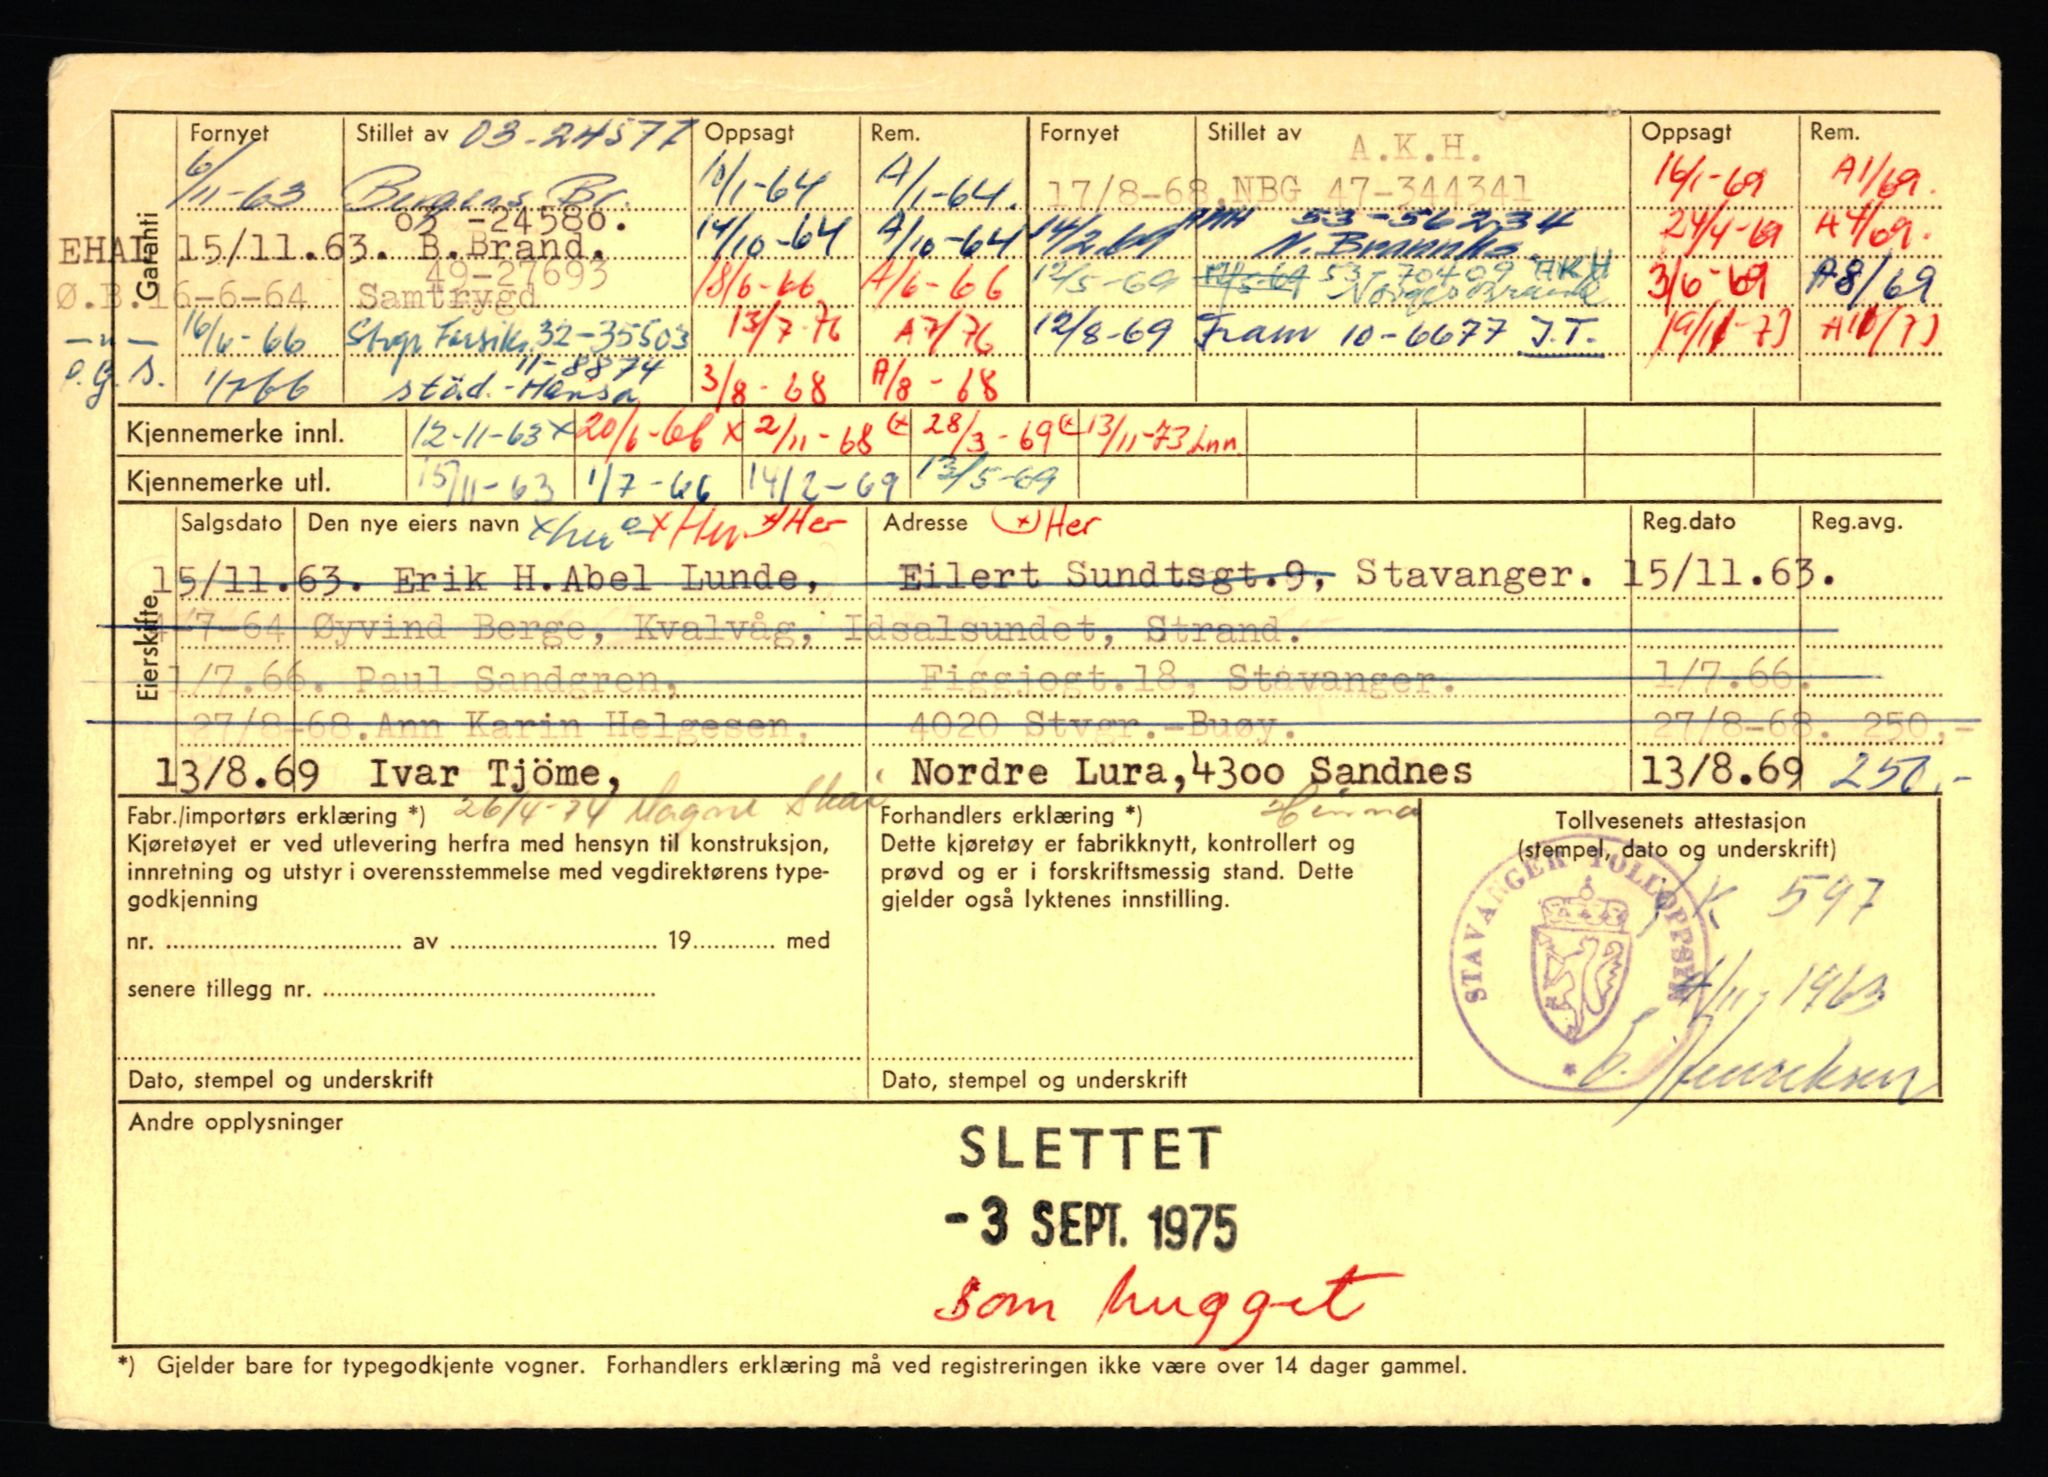 Garanti
Fornyet Stillet av 03-24577 Oppsagt Rem. Fornyet Stillet av A.K.H. Oppsagt Rem.
6/11-63 Bergens Br. 10/1-64 A/1-64. 17/8-68. NBG 47-344341 16/1-69 A1/69.
EHAL 15/11.63. 03-24580. B.Brand. 14/10-64 A/10-64 14/2.69 53-56234 N. Brannks 24/4-69 A4/69.
Ø.B. 16-6-64 49-27693 Samtrygd 18/6-66 A/6-66 12/5-69 53-70409 AKH 3/6-69 A8/69
-"- 16/6-66 Stvgr Forsikr. 32-35503 13/7-76 A7/76 12/8-69 Fram 10-6677 J.T. 19/11-73 A11/73
e.g.s. 1/7-66 11-8874 städ.-Hansa 3/8-68 A/8-68
Kjennemerke innl. 12-11-63 x 20/6-66 x 2/11-68 (x 28/3-69 (x 13/11-73 Inn.
Kjennemerke utl. 15/11-63 1/7-66 14/2-69 13/5-69
Eierskifte
Salgsdato Den nye eiers navn x Her x Her Adresse (x) Her Reg.dato Reg.avg.
15/11.63. Erik H.Abel Lunde, Eilert Sundtsgt.9, Stavanger. 15/11.63.
4-7-64 Øyvind Berge, Kvalvåg, Idsalsundet, Strand.
1/7.66. Paul Sandgren, Figgjogt.18, Stavanger. 1/7.66.
27/8-68. Ann Karin Helgesen, 4020 Stvgr.-Buøy. 27/8-68. 250,-
13/8.69 Ivar Tjöme, Nordre Lura, 4300 Sandnes 13/8.69 250,-
26/4-74 Magne Skai Hinna
Fabr./importørs erklæring *)
Kjøretøyet er ved utlevering herfra med hensyn til konstruksjon,
innretning og utstyr i overensstemmelse med vegdirektørens type-
godkjenning
nr. .............. av .............. 19........ med
senere tillegg nr. ..............
Dato, stempel og underskrift
Forhandlers erklæring *)
Dette kjøretøy er fabrikknytt, kontrollert og
prøvd og er i forskriftsmessig stand. Dette
gjelder også lyktenes innstilling.
Dato, stempel og underskrift
Tollvesenets attestasjon
(stempel, dato og underskrift)
STAVANGER TOLLOPPSYN
K 597
4/11-1963
E. Henriksen
Andre opplysninger
SLETTET
-3 SEPT. 1975
som hugget
*) Gjelder bare for typegodkjente vogner. Forhandlers erklæring må ved registreringen ikke være over 14 dager gammel.